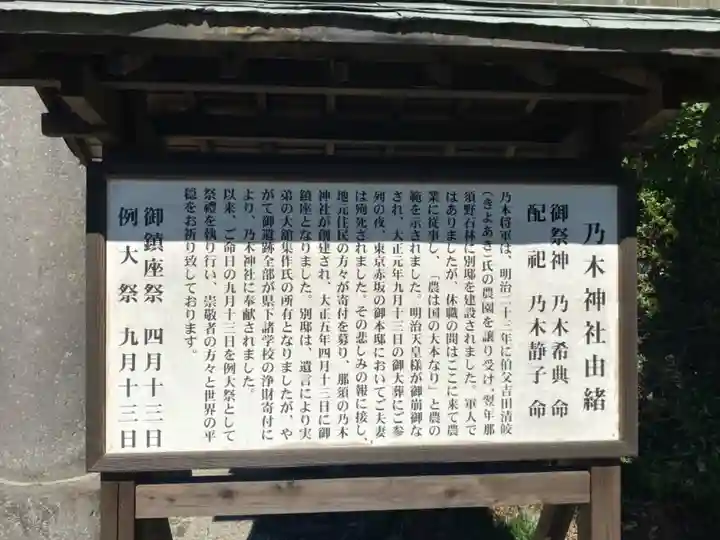 乃木神社由緒
御祭神　乃木希典　命
配　祀　乃木静子　命
乃木将軍は、明治二十三年に伯父吉田清皎
（きよあき）氏の農園を譲り受け、翌年那
須野石林に別邸を建設されました。軍人で
はありましたが、休職の間はここに来て農
業に従事し、「農は国の大本なり」と農の
範を示されました。明治天皇様が御崩御な
され、大正元年九月十三日の御大葬にご参
列の夜、東京赤坂の御本邸においてご夫妻
は殉死されました。その悲しみの報に接し、
地元住民の方々が寄付を募り、那須の乃木
神社が創建され、大正五年四月十三日に御
鎮座となりました。別邸は、遺言により実
弟の大館集作氏の所有となりましたが、や
がて御遺跡全部が県下諸学校の浄財寄付に
より、乃木神社に奉献されました。
以来、ご命日の九月十三日を例大祭として
祭禮を執り行い、崇敬者の方々と世界の平
穏をお祈り致しております。
御鎮座祭　四月十三日
例大祭　九月十三日